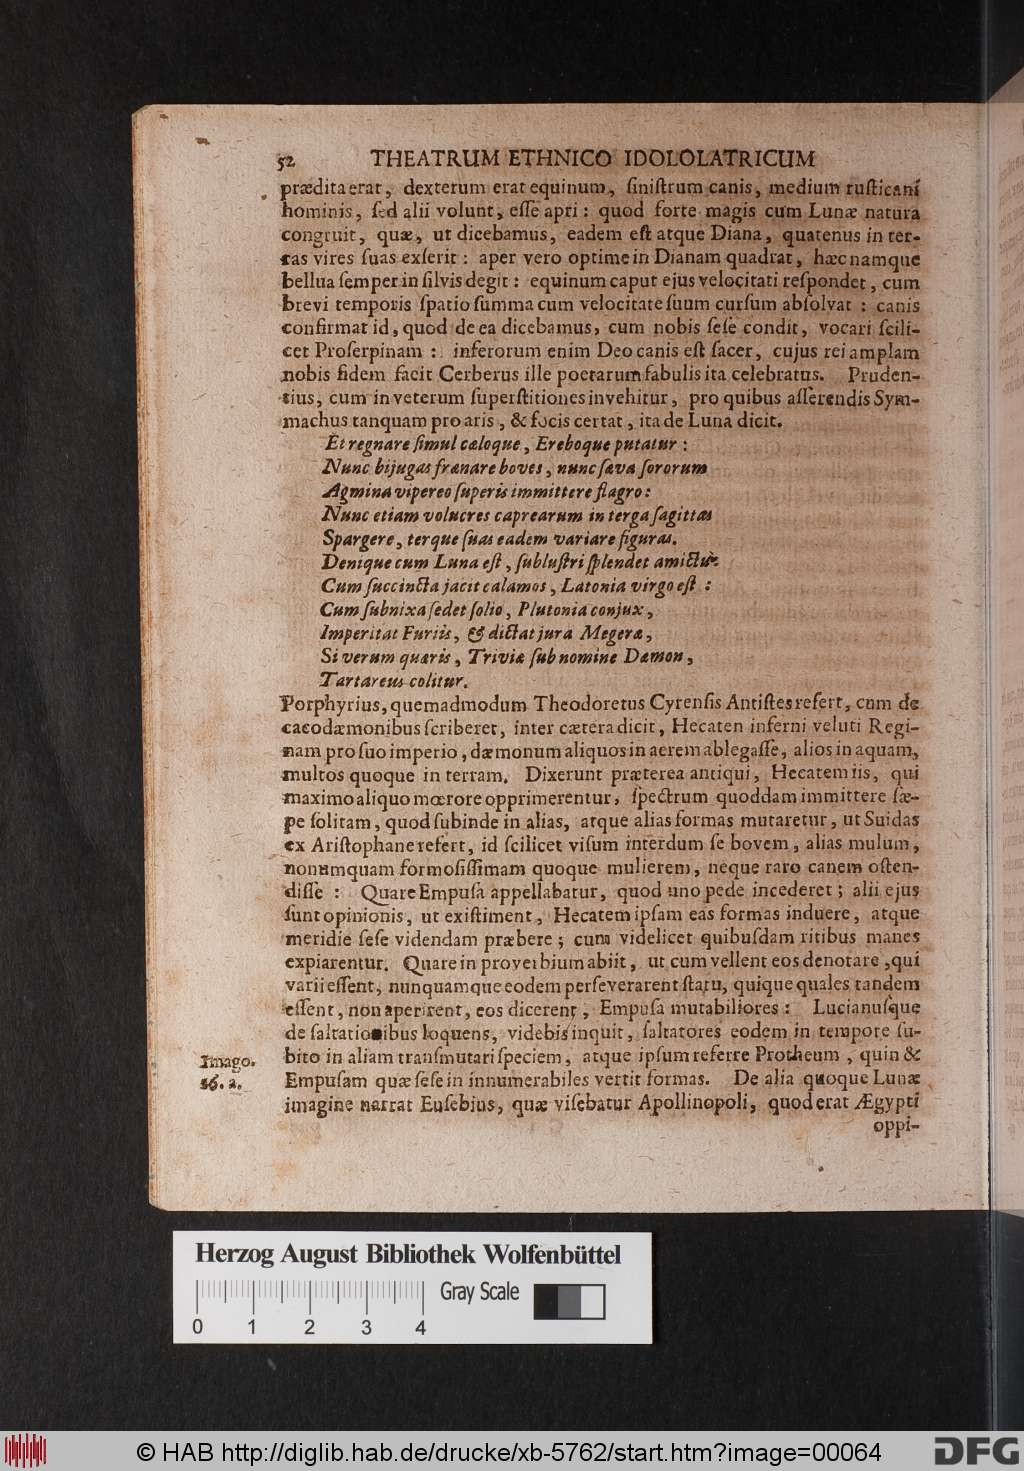 52 THEATRUM ETHNICO IDOLOLATRICUM
prædita erat, dexterum erat equinum, ſiniſtrum canis, medium ruſticani
hominis, ſed alii volunt, eſſe apri: quod forte magis cum Lunæ natura
congruit, quæ, ut dicebamus, eadem eſt atque Diana, quatenus in ter-
ras vires ſuas exſerit: aper vero optime in Dianam quadrat, hæc namque
bellua ſemper in ſilvis degit: equinum caput ejus velocitati reſpondet, cum
brevi temporis ſpatio ſumma cum velocitate ſuum curſum abſolvat: canis
confirmat id, quod de ea dicebamus, cum nobis ſeſe condit, vocari ſcili-
cet Proſerpinam: inferorum enim Deo canis eſt ſacer, cujus rei amplam
nobis fidem facit Cerberus ille poetarum fabulis ita celebratus. Pruden-
tius, cum in veterum ſuperſtitiones invehitur, pro quibus aſſerendis Sym-
machus tanquam pro aris, & focis certat, ita de Luna dicit.
Et regnare ſimul cæloque, Ereboque putatur:
Nunc bijugas frænare boves, nunc ſæva ſororum
Agmina vipereo ſuperis immittere flagro:
Nunc etiam volucres caprearum in terga ſagittas
Spargere, terque ſuas eadem variare figuras.
Denique cum Luna eſt, ſubluſtri ſplendet amictu:
Cum ſuccincta jacit calamos, Latonia virgo eſt:
Cum ſubnixa ſedet ſolio, Plutonia conjux,
Imperitat Furiis, & dictat jura Megeræ,
Si verum quæris, Triviæ ſub nomine Dæmon,
Tartareus colitur.
Porphyrius, quemadmodum Theodoretus Cyrenſis Antiſtes refert, cum de
cacodæmonibus ſcriberet, inter cætera dicit, Hecaten inferni veluti Regi-
nam pro ſuo imperio, dæmonum aliquos in aerem ablegaſſe, alios in aquam,
multos quoque in terram. Dixerunt præterea antiqui, Hecatem iis, qui
maximo aliquo mœrore opprimerentur, ſpectrum quoddam immittere ſæ-
pe ſolitam, quod ſubinde in alias, atque alias formas mutaretur, ut Suidas
ex Ariſtophane refert, id ſcilicet viſum interdum ſe bovem, alias mulum,
nonumquam formoſiſſimam quoque mulierem, neque raro canem oſten-
diſſe: Quare Empuſa appellabatur, quod uno pede incederet; alii ejus
ſunt opinionis, ut exiſtiment, Hecatem ipſam eas formas induere, atque
meridie ſeſe videndam præbere; cum videlicet quibuſdam ritibus manes
expiarentur. Quare in proverbium abiit, ut cum vellent eos denotare, qui
varii eſſent, nunquamque eodem perſeverarent ſtatu, quique quales tandem
eſſent, non aperirent, eos dicerent, Empuſa mutabiliores: Lucianuſque
de ſaltationibus loquens, videbis inquit, ſaltatores eodem in tempore ſu-
bito in aliam tranſmutari ſpeciem, atque ipſum referre Protheum, quin &
Imago.
16. 2.
Empuſam quæ ſeſe in innumerabiles vertit formas. De alia quoque Lunæ
imagine narrat Euſebius, quæ viſebatur Apollinopoli, quod erat Ægypti
oppi-
Herzog August Bibliothek Wolfenbüttel
Gray Scale
0 1 2 3 4
© HAB http://diglib.hab.de/drucke/xb-5762/start.htm?image=00064
DFG